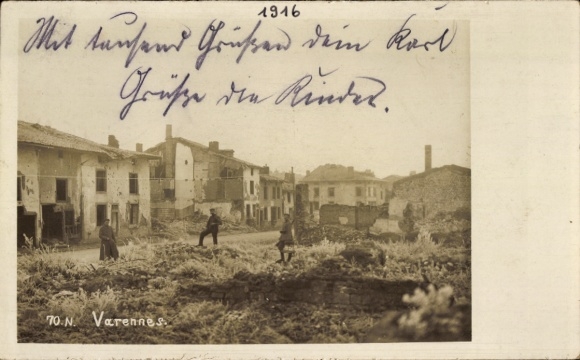 1916
Mit tausend Grüßen dein Karl
Grüße die Kinder.
70.N. Varennes.